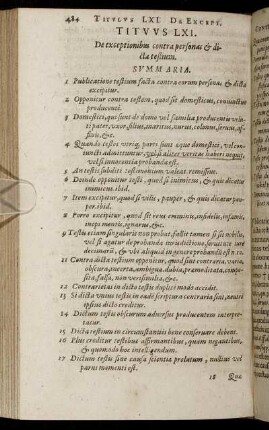 484 TITVLVS LXI. DE EXCEPT.
TITVVS LXI.
De exceptionibus contra personas & di-
cta testium.
SVMMARIA.
1 Publicatione testium facta contra earum personas & dicta
excipitur.
2 Opponitur contra testem, quod sit domesticus, coniunctus
producenti.
3 Domestici, qui sunt de domo vel familia producentis velu-
ti pater, vxor, filius, maritus, nurus, colonus, seruus, af-
finis, &c.
4 Quando testes vtriq; parti sunt aeque domestici, vel con-
iuncti admittuntur, vel si aliter veritas haberi nequit,
vel si innocentia probanda est.
5 An testis subditi testimonium valeat remissiue.
6 Deinde opponitur testi, quod sit inimicus, & quis dicatur
inimicus. ibid.
7 Item excipitur, quod sit vilis, pauper, & quis dicatur pau-
per. ibid.
8 Porro excipitur, quod sit reus criminis, infidelis, infamis,
inops mentis, ignarus, &c.
9 Testis etiam singularis non probat, fallit tamen si sit nobilis,
vel si agatur de probanda
dictionis, & vbi aliqua in genere probandis est.
11 Contra dicta testium opponitur, quod sint contraria, varia,
obscura, incerta, ambigua, dubia, praemeditata, compo-
sita, falsa, non verosimilia, &c.
12 Contrarietas in dicto testis dupliciter modo accidit.
13 Si dicta vnius testis in eadem scriptura contraria sint, neutri
ipsius dicto creditur.
14 Dictum testis obscurum aduersus producentem interpre-
tatur.
15 Dicta testium in circumstantiis bene conseruare debent.
16 Plus creditur testibus affirmantibus, quam negantibus,
& quomodo hoc intelligendum.
17 Dictum testis sine causa scientiae prolatum, nullius vel
parui momenti est.
18 Quae